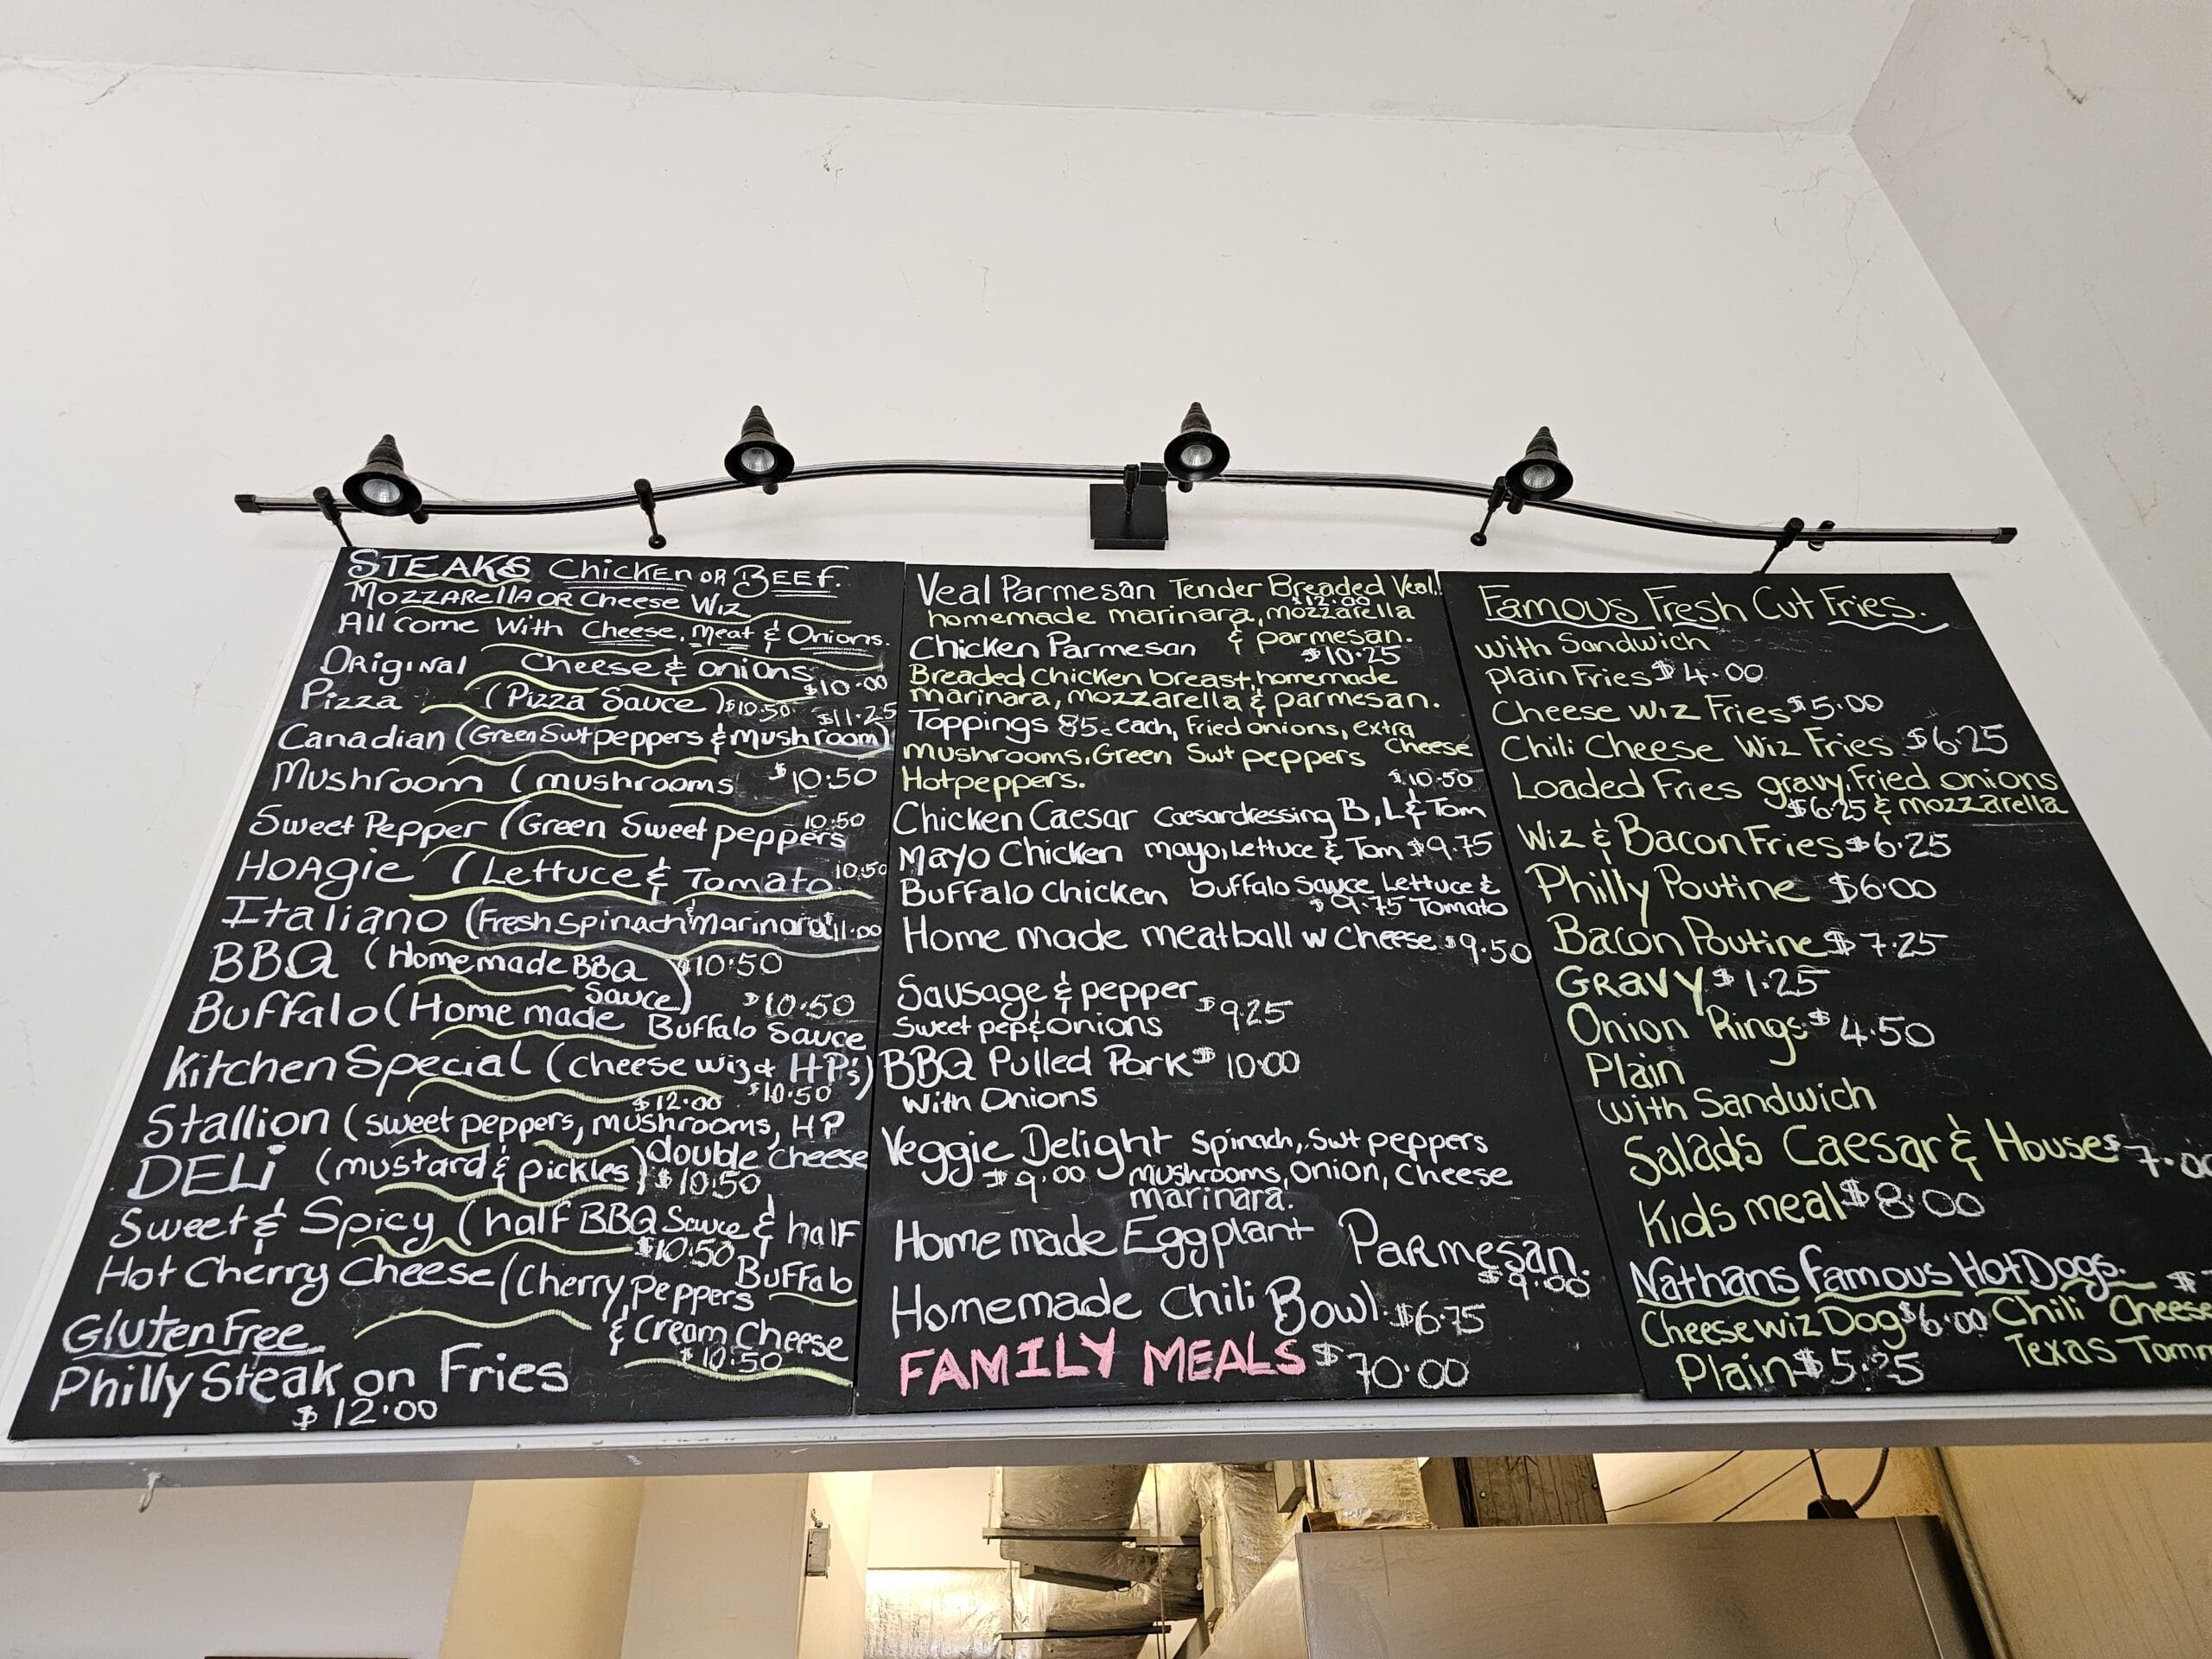 STEAKS Chicken or BEEF.
Mozzarella or Cheese Wiz
All come With Cheese, Meat & Onions.
Original Cheese & onions
$10.00
Pizza (Pizza Sauce) $10.50
$11.25
Canadian (Green Swt peppers & Mushroom)
Mushroom (mushrooms $10.50
10.50
Sweet Pepper (Green Sweet peppers
Hoagie (Lettuce & Tomato 10.50
Italiano (Fresh Spinach & Marinara 11.00
BBQ (Homemade BBQ $10.50
Sauce)
Buffalo (Home made $10.50
Buffalo Sauce
Kitchen Special (Cheese wiz & HP's)
$12.00 $10.50
Stallion (sweet peppers, mushrooms, HP
double cheese
DELi (mustard & pickles) $10.50
Sweet & Spicy (half BBQ Sauce & half
$10.50 Buffalo
Hot Cherry Cheese (Cherry Peppers
& Cream Cheese
$10.50
Gluten Free
Philly Steak on Fries
$12.00
Veal Parmesan Tender Breaded Veal.
$12.00
homemade marinara, mozzarella
& parmesan.
Chicken Parmesan $10.25
Breaded Chicken breast, homemade
marinara, mozzarella & parmesan.
Toppings 85c each, Fried onions, extra
Cheese
mushrooms, Green Swt peppers
Hotpeppers.
$10.50
Chicken Caesar Caesar dressing B, L & Tom
Mayo Chicken mayo, Lettuce & Tom $9.75
Buffalo Chicken buffalo Sauce Lettuce &
$9.75 Tomato
Home made meatball w Cheese $9.50
Sausage & pepper $9.25
Sweet pep & onions
BBQ Pulled Pork $10.00
With Onions
Veggie Delight Spinach, Swt peppers
$9.00 Mushrooms, Onion, Cheese
marinara.
Home made Eggplant Parmesan.
$9.00
Homemade Chili Bowl $6.75
FAMILY MEALS $70.00
Famous Fresh Cut Fries.
with Sandwich
Plain Fries $4.00
Cheese Wiz Fries $5.00
Chili Cheese Wiz Fries $6.25
Loaded Fries gravy, Fried onions
$6.25 & mozzarella
Wiz & Bacon Fries $6.25
Philly Poutine $6.00
Bacon Poutine $7.25
Gravy $1.25
Onion Rings $4.50
Plain
with Sandwich
Salads Caesar & House $7.00
Kids meal $8.00
Nathans Famous Hot Dogs. $
Cheese wiz Dog $6.00 Chili Cheese
Texas
Plain $5.25